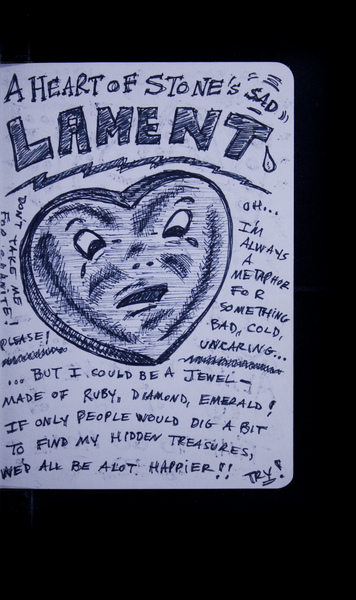 A HEART OF STONE'S
SAD
LAMENT
OH...
I'M
ALWAYS
A
METAPHOR
FOR
SOMETHING
BAD, COLD,
UNCARING...
DON'T TAKE ME
FOR GRANITE!
PLEASE!
... BUT I COULD BE A JEWEL—
MADE OF RUBY, DIAMOND, EMERALD!
IF ONLY PEOPLE WOULD DIG A BIT
TO FIND MY HIDDEN TREASURES,
WE'D ALL BE ALOT HAPPIER!!
TRY!